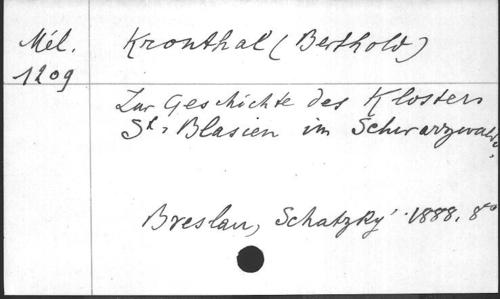 Mél.
1209
Kronthal (Berthold)
Zur Geschichte des Klosters
St. Blasien im Schwarzwald,
Breslau, Schatzky 1888. 8°